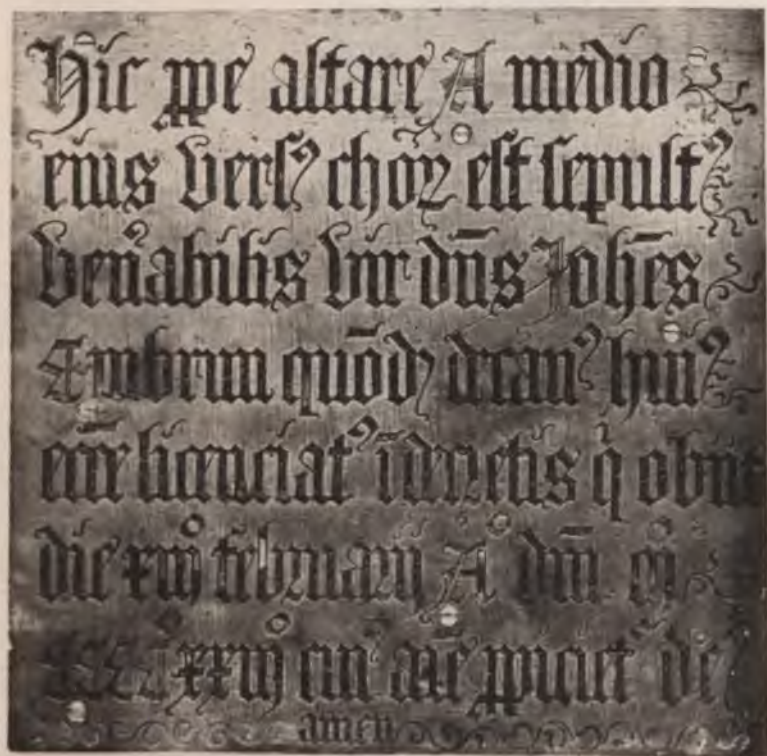 Hic ꝓpe altare A medio
eius vers⁹ choꝝ est sepult⁹
ven̄abilis vir dn̄s Joh̄es
Ambrun quōdā decan⁹ hui⁹
ecc̄e licenciat⁹ ī decretis q̇ obiit
die xiijº februarij Aº dn̄i mº
ccccº xxiijº cui⁹ aīe ꝓpiciet᷑ de⁹
amen